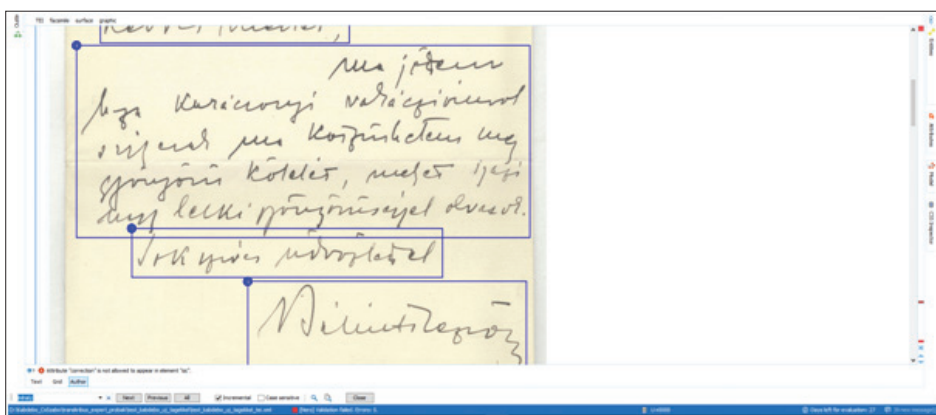 TEI facsimile surface graphic
ma jöttem
haza karácsonyi vakációmról
s így csak ma köszönhetem meg
gyönyörű kötetét, melyet igazi
nagy lelki gyönyörűséggel olvasok.
Sok szíves üdvözlettel
Entities
Attributes
Model
CSS Inspector
Attribute "correction" is not allowed to appear in element
Text Grid Author
Next Previous All Incremental Case sensitive Close
Validation failed. Errors:
Days left for evaluation: 27